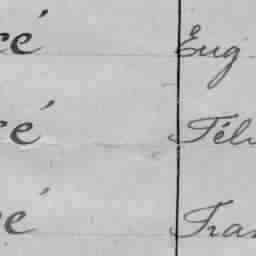 ré Eug
ré Féli
ré Fran